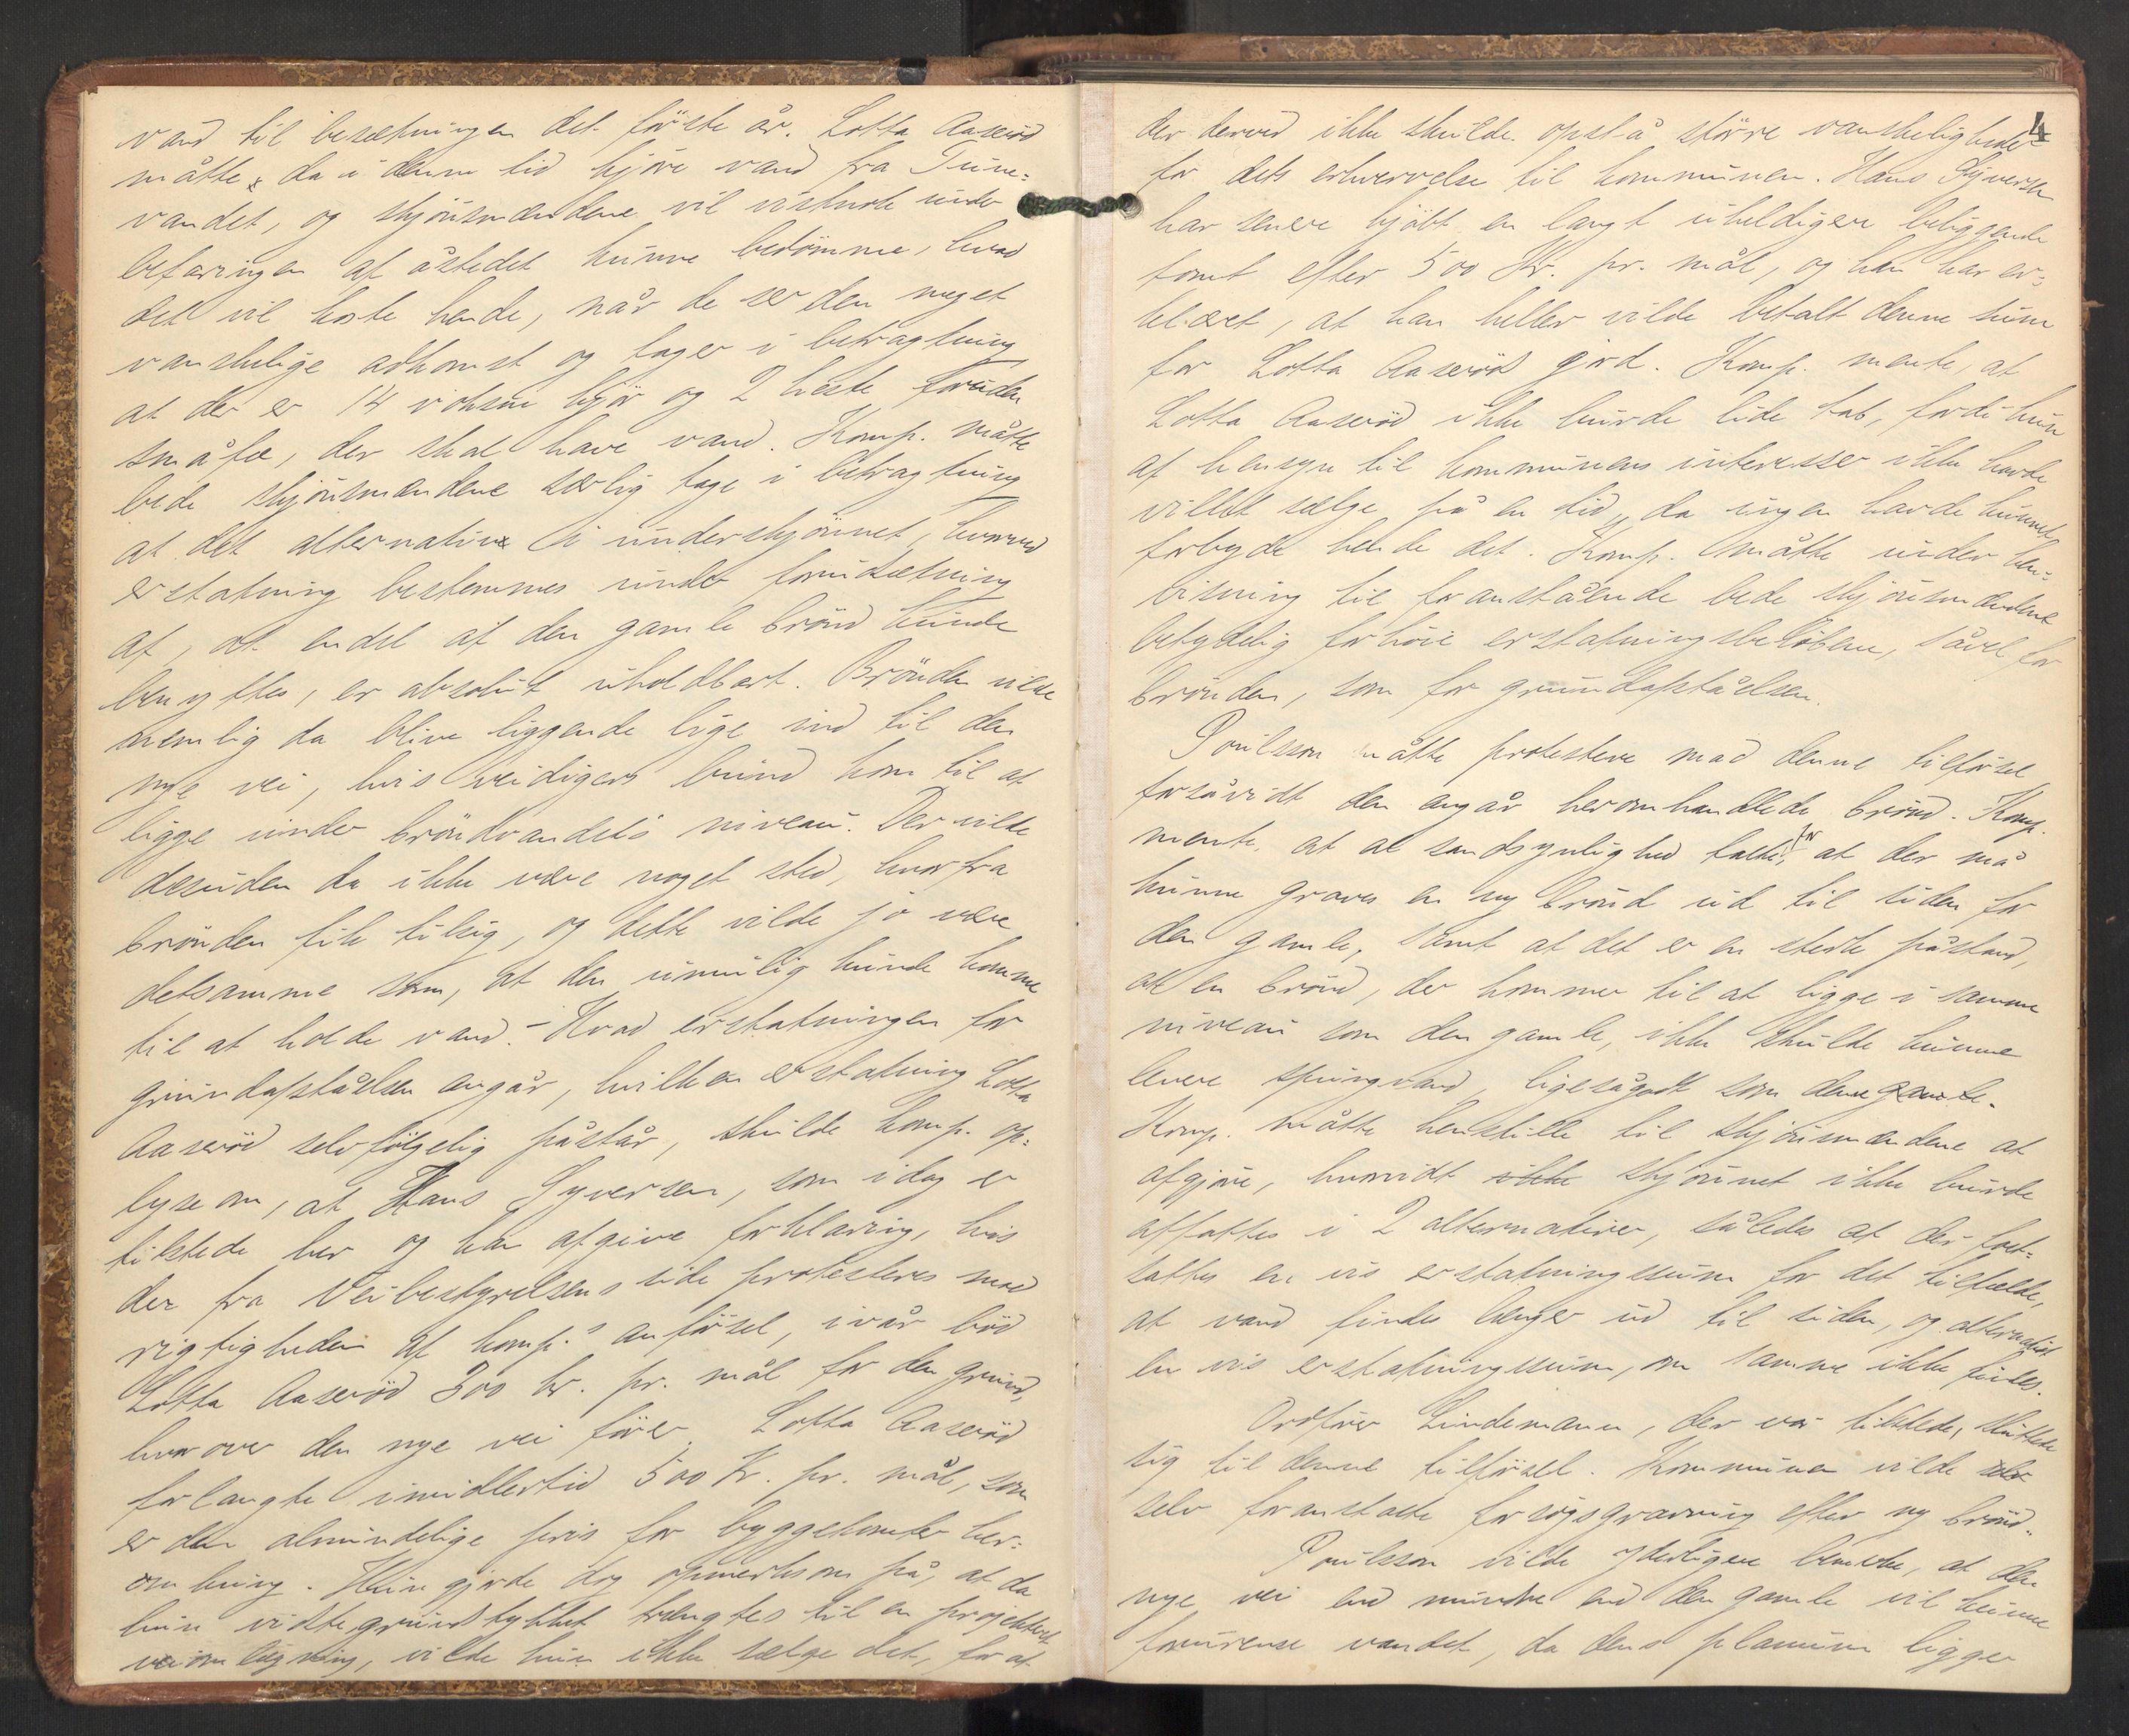 vand til besætningen det förste år. Lotta Aaseröd
måtte da i denne tid kjöre vand fra Tune-
vandet, og skjönsmændene vil vistnok under
befaringen af åstedet kunne bedömme, hvad
det vil koste hende, når de ser den meget
vanskelige adkomst og tager i betragtning
at der er 14 voksne kjör og 2 heste foruden
småfæ, der skal have vand. Komp. måtte
bede skjönsmændene særlig tage i betragtning
at det alternativ i underskjönnet, hvorved
erstatning bestemmes under forudsætning
af, at endel af den gamle brönd kunde
benyttes, er absolut uholdbart. Brönden vilde
nemlig da blive liggende lige ind til den
nye vei, hvis veidiges bund kom til at
ligge under bröndvandets niveau. Der vilde
desuden da ikke være noget sted, hvorfra
brönden fik tilsig, og dette vilde jo være
detsamme som, at den umulig kunde komme
til at holde vand. – Hvad erstatningen for
grundafståelsen angår, hvilken erstatning Lotta
Aaseröd selvfölgelig påstår, skulde komp. op-
lyse om, at Hans Syversen, som idag er
tilstede her og kan afgive forklaring, hvis
der fra Veibestyrelsens side protesteres mod
rigtigheden af komp.s anförsel, ivår böd
Lotta Aaseröd 300 kr. pr. mål for den grund,
hvorover den nye vei förer. Lotta Aaseröd
forlangte imidlertid 500 Kr. pr. mål, som
er den almindelige pris for byggetomter her-
omkring. Hun gjorde dog opmerksom på, at da
hun vidste grundstykket trængtes til en projekteret
veiomlægning, vilde hun ikke sælge det, for at
4
der derved ikke skulde opstå större vanskeligheder
for dets erhvervelse til kommunen. Hans Syversen
har senere kjöbt en langt uheldigere beliggende
tomt efter 500 Kr. pr. mål, og han har er-
klæret, at han heller vilde betalt denne sum
for Lotta Aaseröds jord. Komp. mente, at
Lotta Aaseröd ikke burde lide tab, fordi hun
af hensyn til kommunens interesser ikke havde
villet sælge på en tid, da ingen havde kunnet
forbyde hende det. Komp. måtte under hen-
visning til foranstående bede skjönsmændene
betydelig forhöie erstatningsbelöbene, såvel for
brönden, som for grundafståelsen.
Poulsson måtte protestere mod denne tilförsel,
forsåvidt den angår heromhandlede brönd. Komp.
mente, at al sandsynlighed taler for at der må
kunne graves en ny brönd ud til siden for
den gamle, samt at det er en sterk påstand,
at en brönd, der kommer til at ligge i samme
niveau som den gamle, ikke skulde kunne
levere springvand, ligesågodt som den gamle.
Komp. måtte henstille til skjönsmændene at
afgjöre, hvorvidt ikke skjönnet ikke burde
affattes i 2 alternativer, således at der fast-
sattes en vis erstatningssum for det tilfælde,
at vand findes længer ud til siden, og alternativt
en vis erstatningssum, om samme ikke findes.
Ordförer Lindemann, der var tilstede, sluttede
sig til denne tilförsel. Kommunen vilde selv
selv foranstalte forsögsgravning efter ny brönd.
Poulsson vilde yderligere bemerke, at den
nye vei end mindre end den gamle vil kunne
forurense vandet, da dens planum ligger